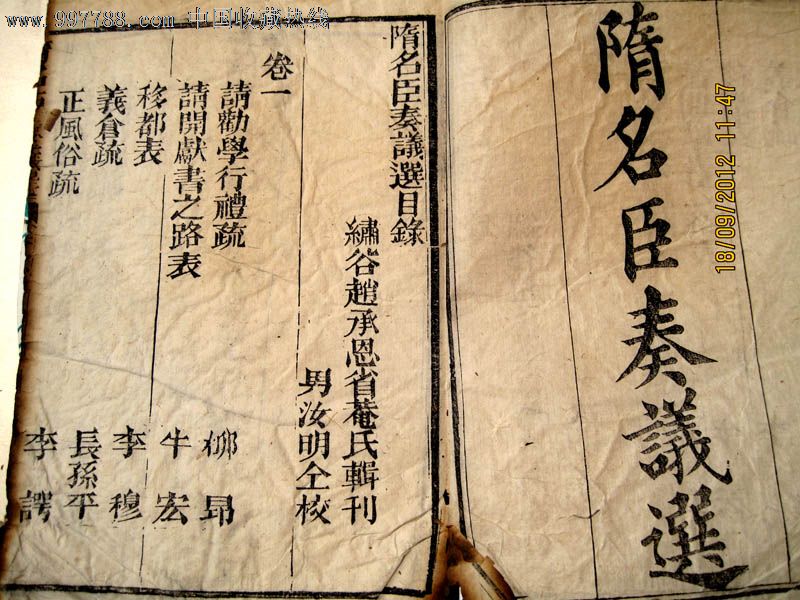 www.997788.com 中国收藏热线
18/09/2012 11:47
隋名臣奏議選
隋名臣奏議選目錄
繡谷趙承恩省菴氏輯刊
男汝明仝校
卷一
請勸學行禮疏 柳昂
請開獻書之路表 牛宏
移都表 李穆
義倉疏 長孫平
正風俗疏 李諤